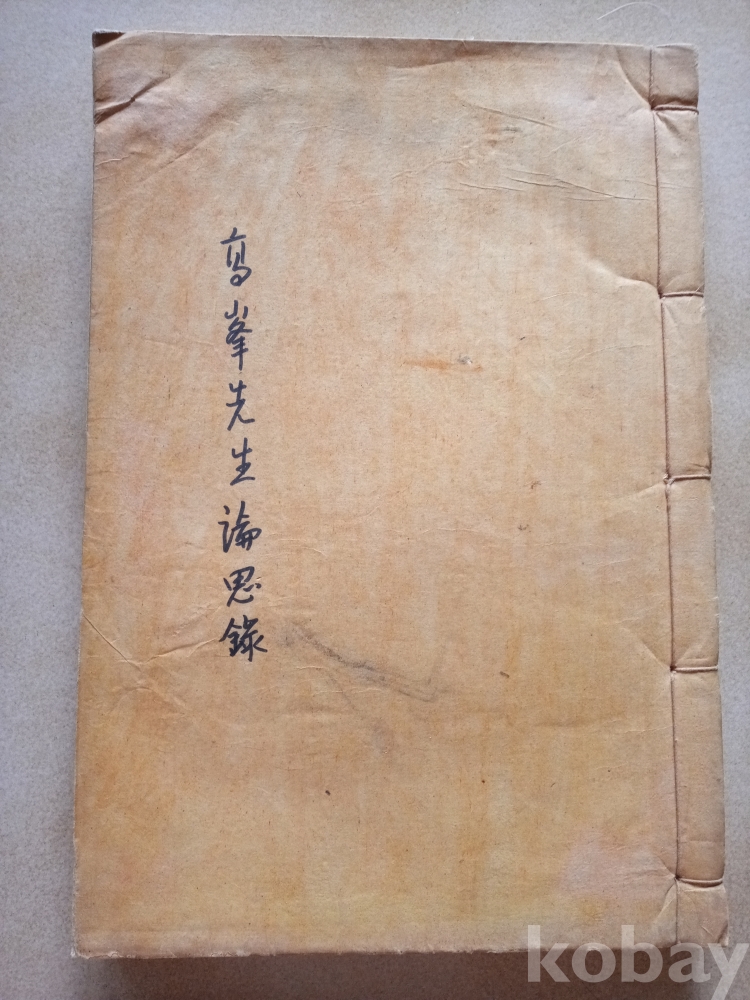 高峯先生論思錄
kobay